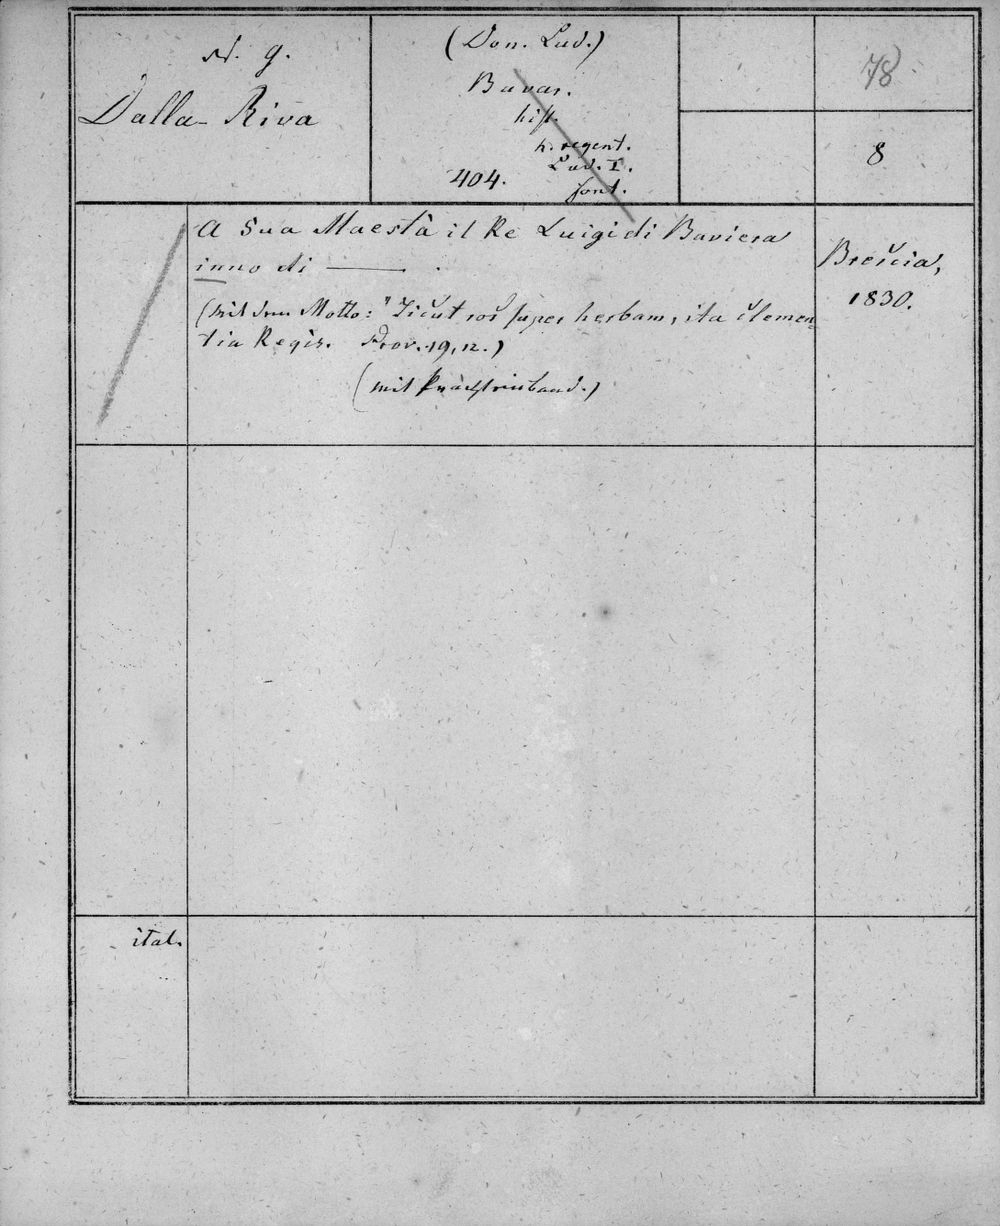 N. g.
Dalla-Riva
(Don. Lud.)
Bavar.
hist.
h. regent.
Lud. I.
font.
404.
78
8
A Sua Maestà il Re Luigi di Baviera
inno di ——— .
(mit dem Motto: "Sicut ros super herbam, ita clemen-
tia Regis. Prov. 19, 12.)
(mit Prachteinband.)
Brescia,
1830.
ital.